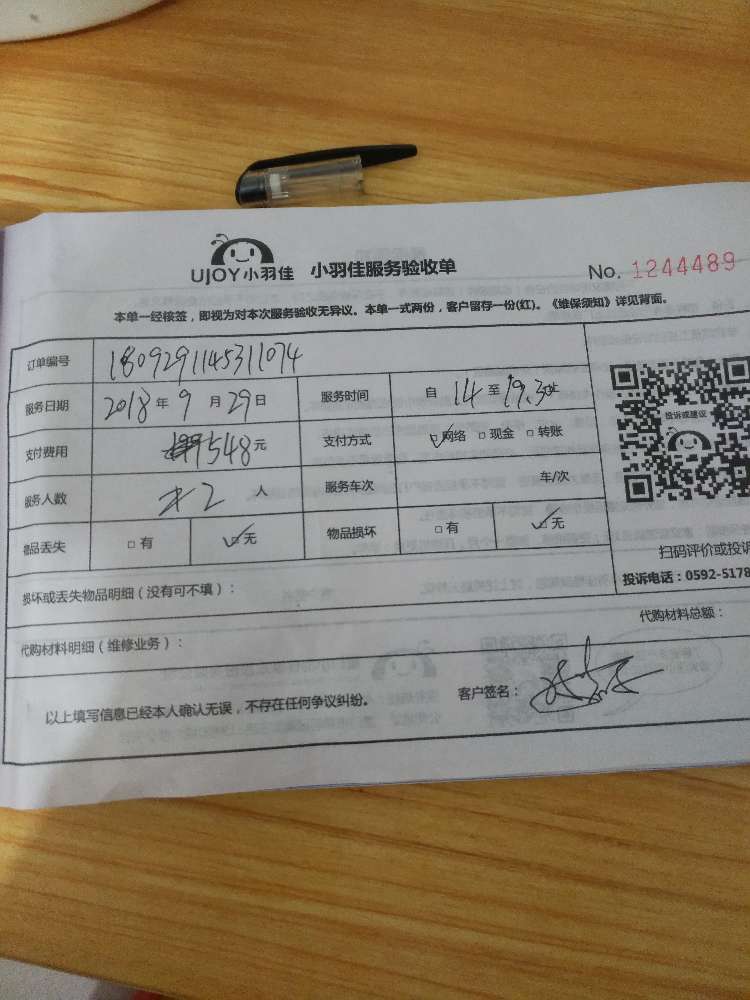 UJOY小羽佳 小羽佳服务验收单 No. 1244489
本单一经核签，即视为对本次服务验收无异议。本单一式两份，客户留存一份(红)。《维保须知》详见背面。
订单编号 1809291145311074
服务日期 2018年9月29日 服务时间 自14至19.30止
投诉或建议
支付费用 548元 支付方式 ☑网络 □现金 □转账
服务人数 2人 服务车次 车/次
物品丢失 □有 ☑无 物品损坏 □有 ☑无
扫码评价或投诉
损坏或丢失物品明细（没有可不填）： 投诉电话：0592-5178
代购材料明细（维修业务）： 代购材料总额：
以上填写信息已经本人确认无误，不存在任何争议纠纷。 客户签名：